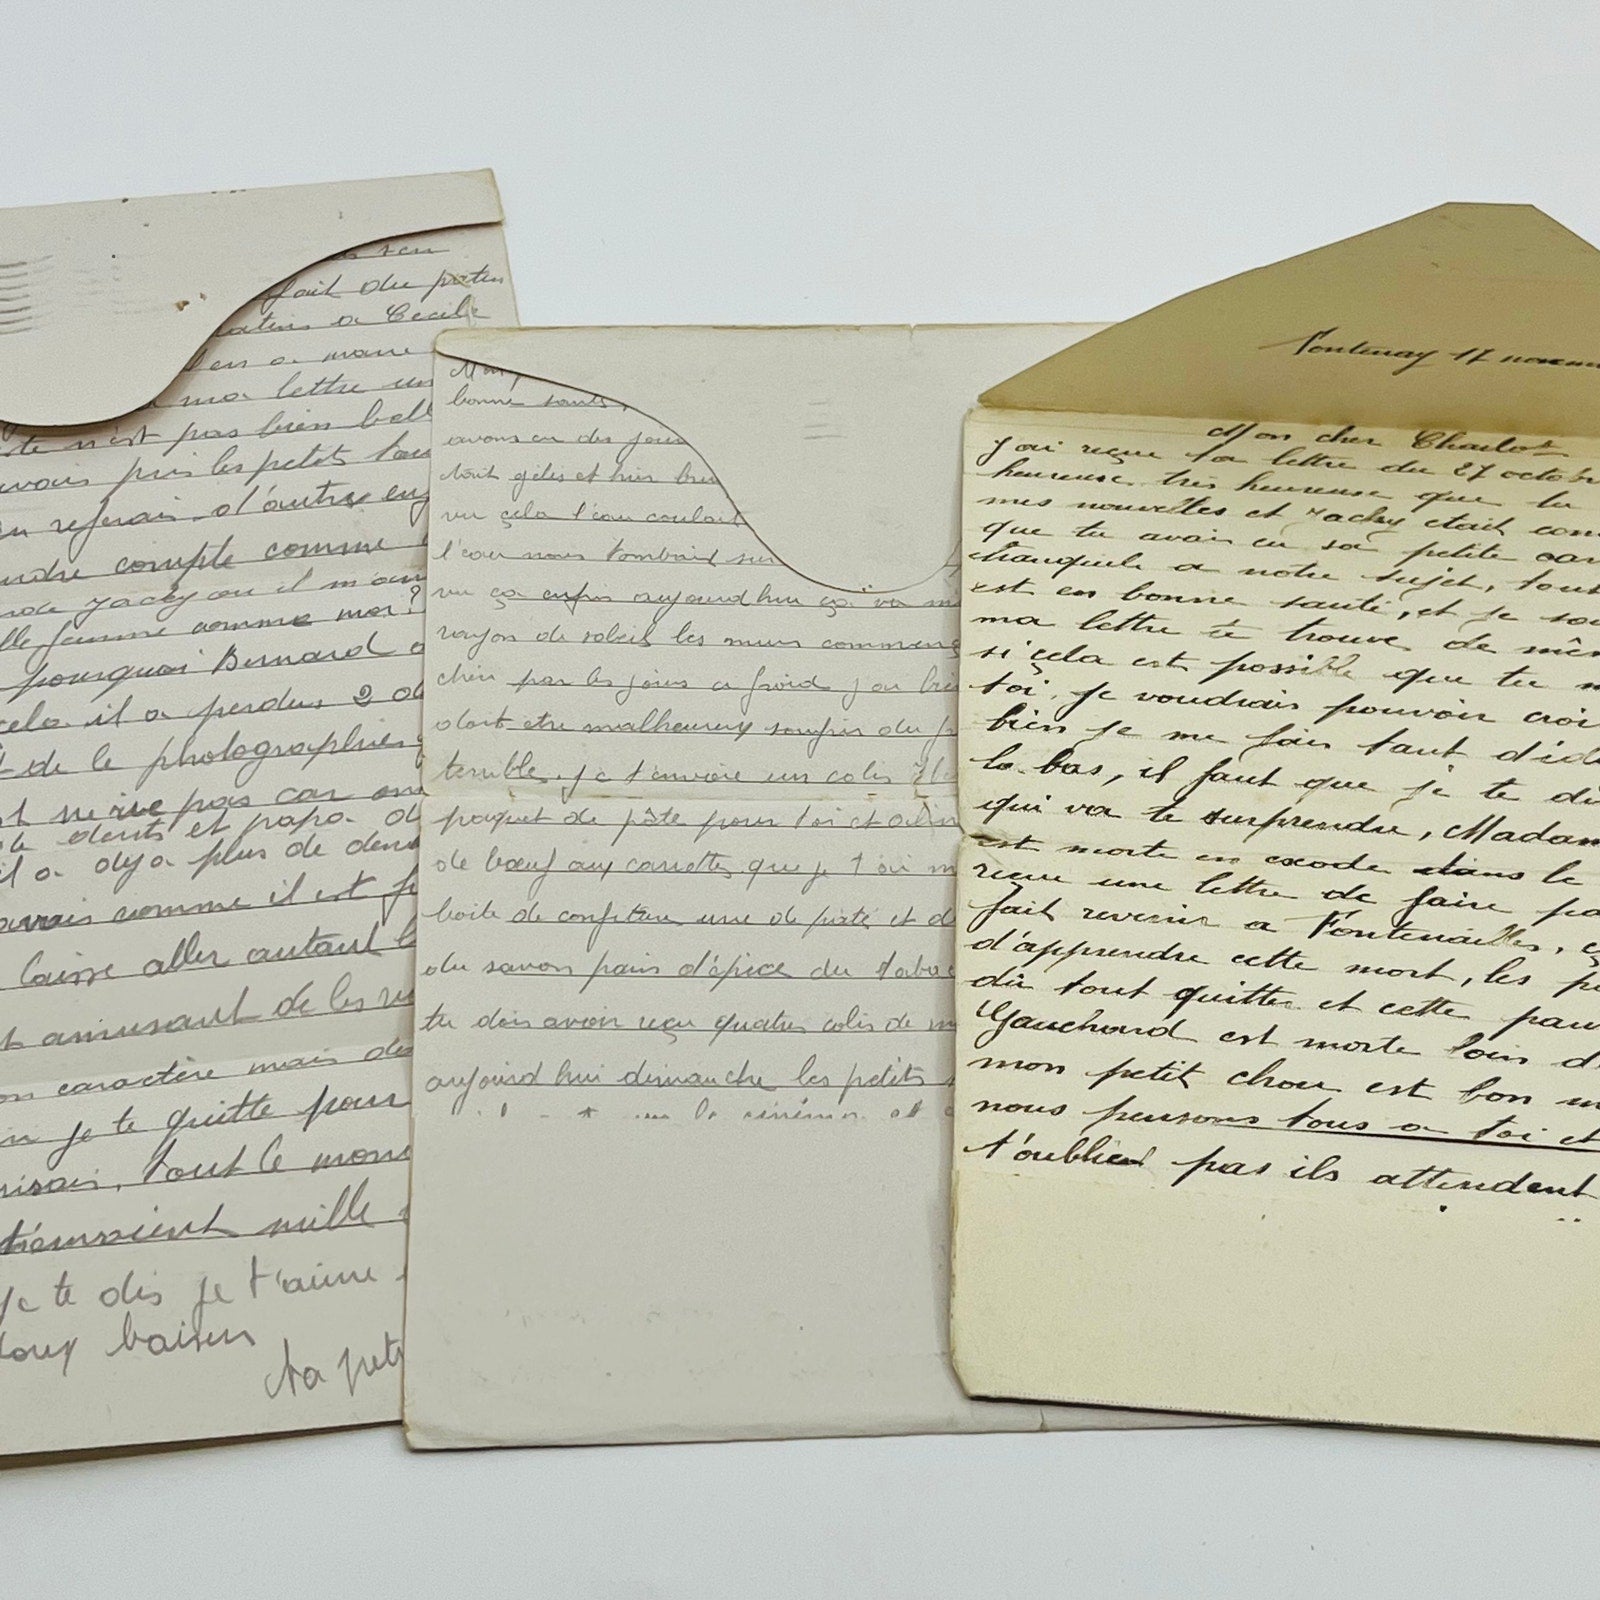 fait du
a Cecile
en a marre
ma lettre un
te n'est pas bien bell
avais pris les petits
en referais d'autres en
endre compte comme
Jacky ou il m'a
lle femme comme moi ?
pourquoi Bernard a
cela il a perdus 2 de
t de le photographier
st ne rie pas car
te dents et papa d
il a deja plus de dent
avais comme il est f
laisse aller autant l
t amusant de les
on caractère mais des
in je te quitte pour
tout le mon
t'envoient mille
je te dis je t'aime
doux baisers
ta peti
Mon
bonne santé,
avons eu des jour
était gelés et hier
vu cela l'eau coulait
l'eau nous tombait sur
vu ça enfin aujourd hui ça va mi
rayon de soleil les murs commenc
chéri par les jours a froid j ai bie
doit etre malheureux soufrir du f
terrible. je t'envoie un colis
paquet de pâte pour toi et
de bœuf aux carottes que je t ai m
boite de confiture une de paté et d
du savon pain d'épice du tabac
tu dois avoir reçu quatre colis de m
aujourd hui dimanche les petits
cinéma et
Fontenay 17 novem
Mon cher Charlot
J'ai reçue ta lettre du 27 octobr
heureuse très heureuse que tu
mes nouvelles et Jacky etait con
que tu avais eu sa petite car
tranquile a notre sujet, tout
est en bonne santé, et je sou
ma lettre te trouve de mêm
si cela est possible que tu m
toi, je voudrais pouvoir croi
bien je me fais tant d'idé
la bas, il faut que je te di
qui va te surprendre, Madam
est morte en exode dans le
reçue une lettre de faire pa
fait revenir a Fontenailles, ç
d'apprendre cette mort, les p
dû tout quitter et cette pauv
Gauchard est morte loin d
mon petit chou est bon m
nous pensons tous a toi et
t'oublient pas ils attendent